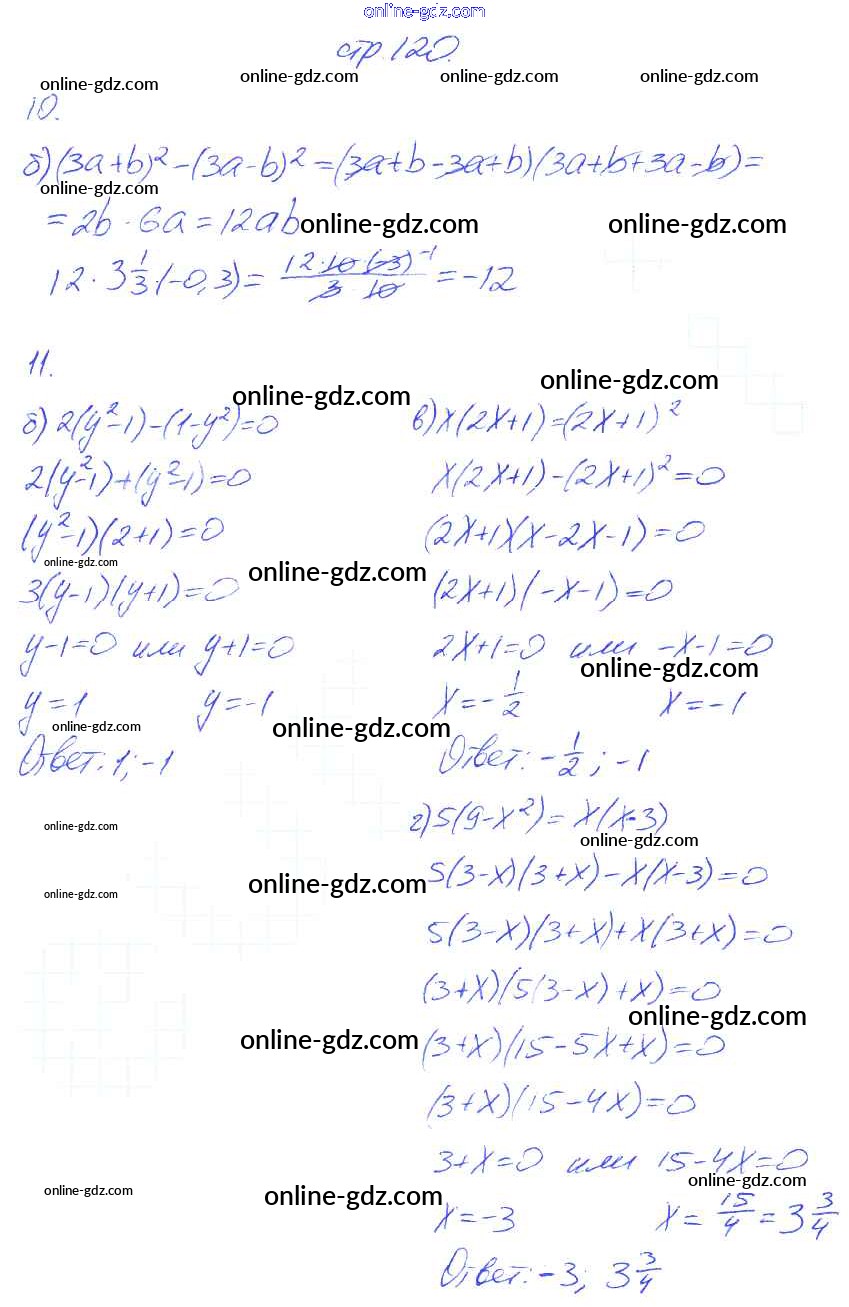 online-gdz.com
стр. 120.
online-gdz.com online-gdz.com online-gdz.com online-gdz.com
10.
б) (3a+b)² - (3a-b)² = (3a+b-3a+b)(3a+b+3a-b) =
online-gdz.com
= 2b · 6a = 12ab
online-gdz.com online-gdz.com
12 · 3 1/3 · (-0,3) = 12·10·(-3)⁻¹ / 3·10 = -12
11.
online-gdz.com online-gdz.com
б) 2(y²-1)-(1-y²)=0
2(y²-1)+(y²-1)=0
(y²-1)(2+1)=0
online-gdz.com online-gdz.com
3(y-1)(y+1)=0
y-1=0 или y+1=0
y=1 y=-1
online-gdz.com online-gdz.com
Ответ: 1; -1
online-gdz.com
online-gdz.com online-gdz.com
online-gdz.com
online-gdz.com online-gdz.com
в) x(2x+1)=(2x+1)²
x(2x+1)-(2x+1)²=0
(2x+1)(x-2x-1)=0
(2x+1)(-x-1)=0
2x+1=0 или -x-1=0
online-gdz.com
x=-1/2 x=-1
Ответ: -1/2; -1
г) 5(9-x²)=x(x-3)
online-gdz.com
5(3-x)(3+x)-x(x-3)=0
5(3-x)(3+x)+x(3+x)=0
(3+x)(5(3-x)+x)=0
online-gdz.com
(3+x)(15-5x+x)=0
(3+x)(15-4x)=0
3+x=0 или 15-4x=0
online-gdz.com
x=-3 x=15/4=3 3/4
Ответ: -3; 3 3/4